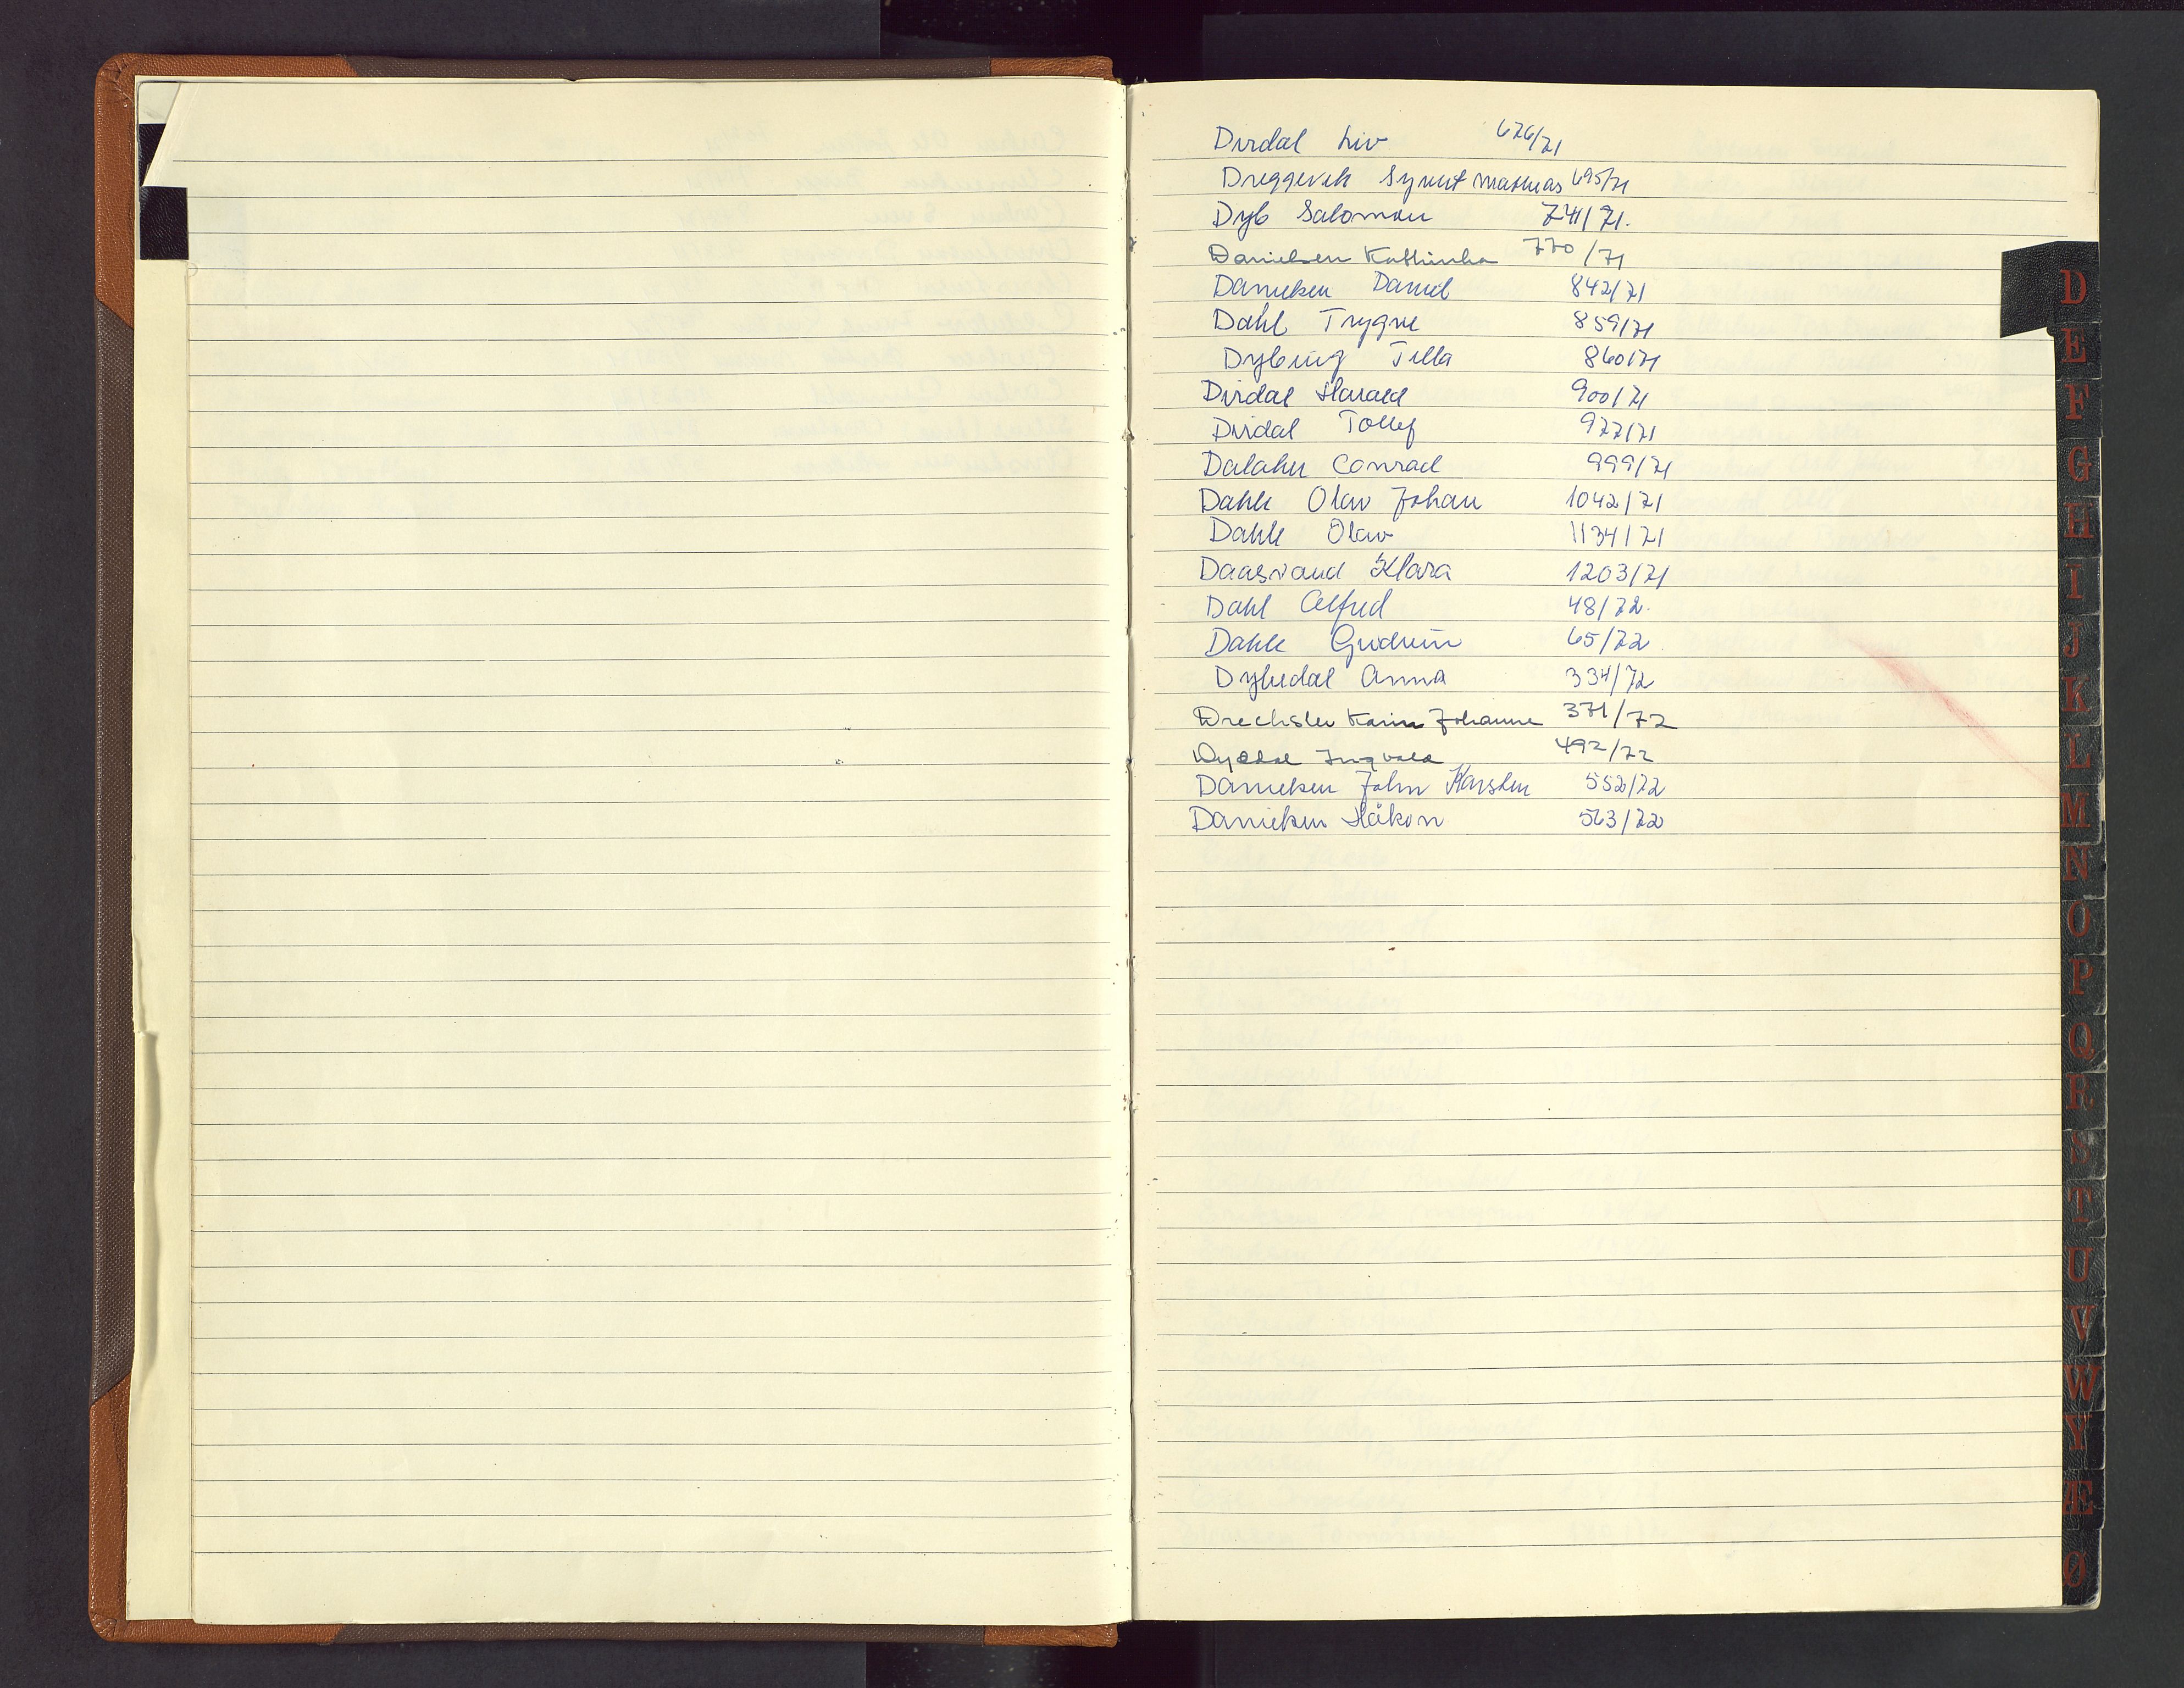 Dirdal Liv 626/71
Dreggevik Synnut Mathias 695/71
Dyb Salomon 741/71.
Danielsen Kathinka 770/71
Danielsen Daniel 842/71
Dahl Trygve 859/71
Dybing Tilla 860/71
Dirdal Harald 900/71
Dirdal Tollef 977/71
Dalaker Conrad 999/71
Dahle Olav Johan 1042/71
Dahle Olav 1134/71
Daasvand Klara 1203/71
Dahl Alfred 48/72.
Dahle Gudrun 65/72
Dybedal Anna 334/72
Drechsler Karin Johanne 371/72
Dybdal Ingvald 492/72
Danielsen John Karsten 552/72
Danielsen Håkon 563/72
D
E
F
G
H
I
J
K
L
M
N
O
P
Q
R
S
T
U
V
W
Y
Æ
Ø